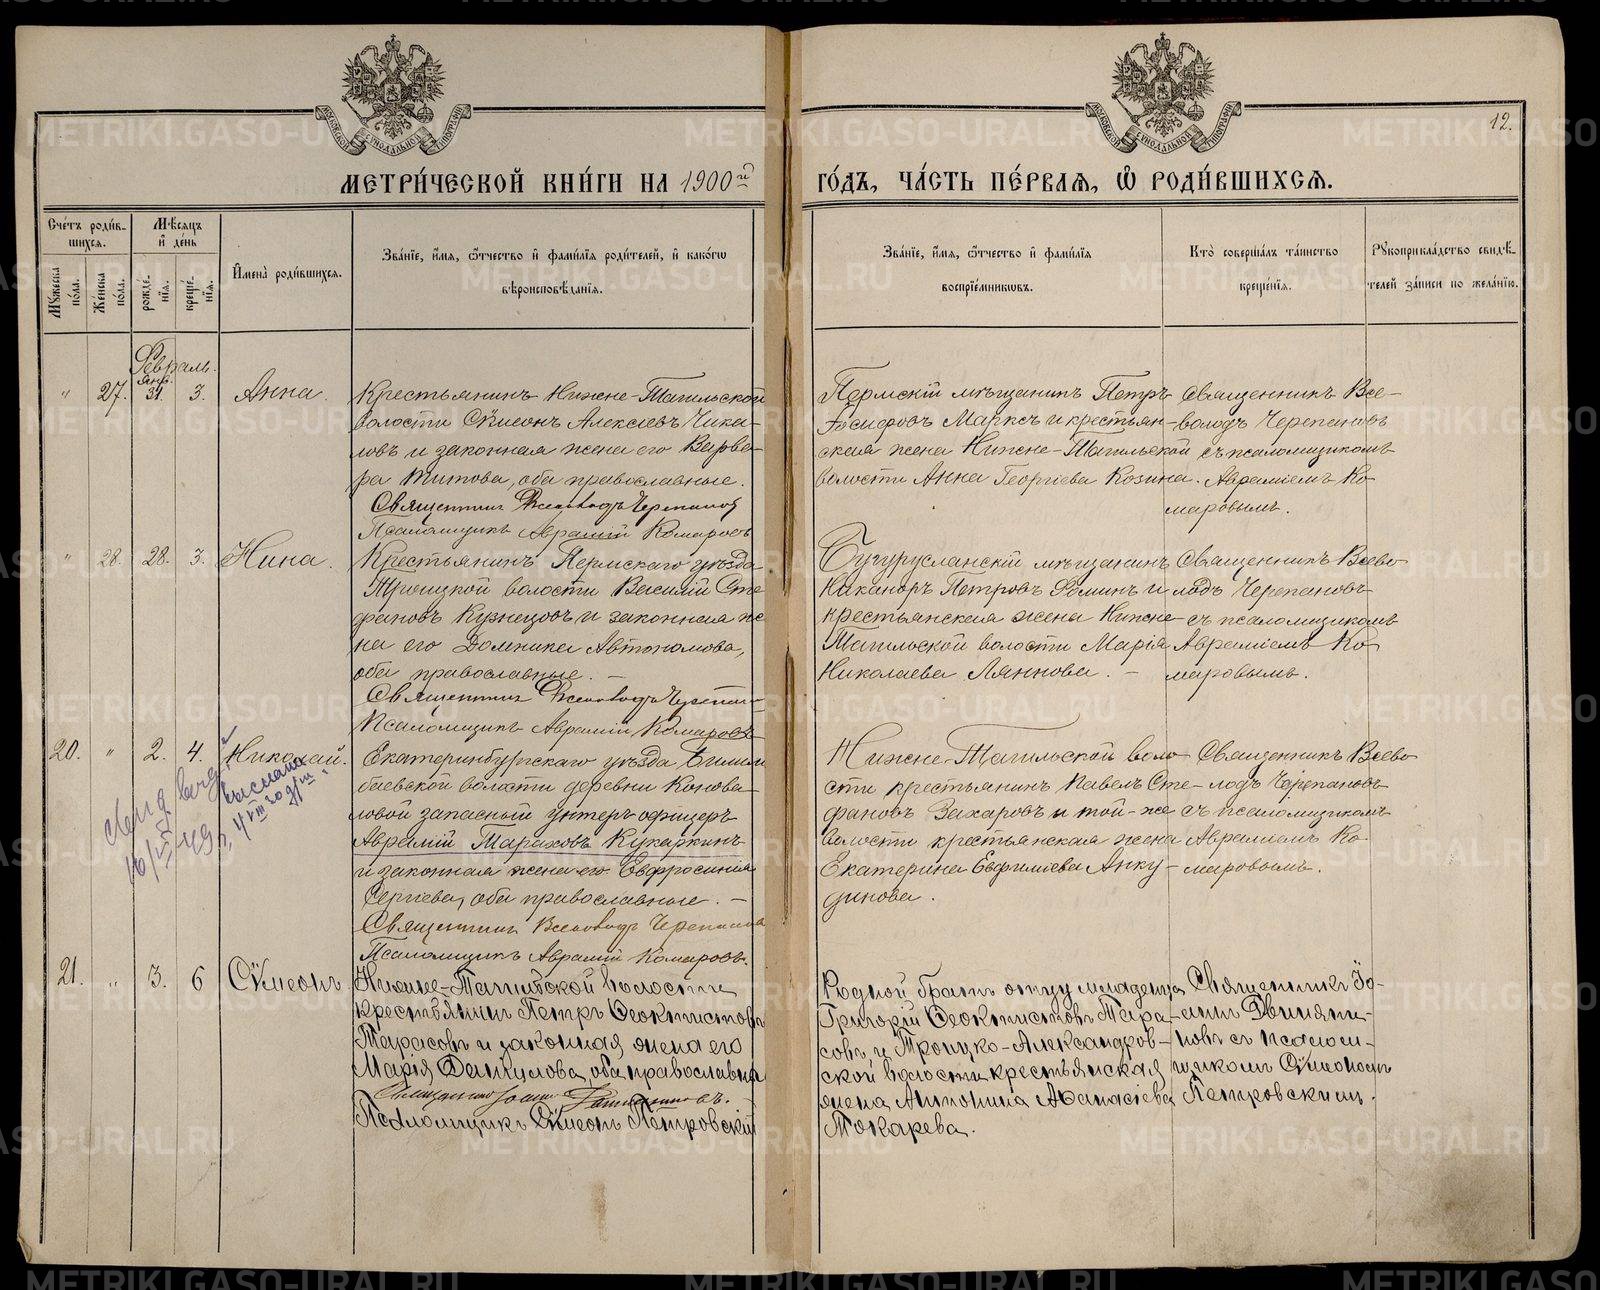 12.
МЕТРИ́ЧЕСКОЙ КНИ́ГИ НА 1900й
ГО́ДЪ, ЧА́СТЬ ПЕ́РВАЯ, Ѡ҆ РОДИ́ВШИХСЯ.
Сче́тъ роди́в-
шихся.
Мѣ́сяцъ
и҆ де́нь
Мꙋжеска по́ла.
Же́нска по́ла.
рожде́-
нїѧ.
креще́-
нїѧ.
И҆мена̀ роди́вшихся.
Зва́нїе, и҆́мя, ѻ҆́тчество и҆ фами́лїя роди́телей, и҆ како́гѡ
вѣроисповѣ́данїя.
Зва́нїе, и҆́мя, ѻ҆́тчество и҆ фами́лїя
воспрїе́мникѡвъ.
Кто̀ соверша́лъ та́инство
креще́нїя.
Рꙋкоприкла́дство свидѣ́-
телей за́писи по жела́нїю.
Февраль.
" 27. Янв. 31. 3. Анна.
Крестьянинъ Нижне-Тагильской
волости Сѷмеонъ Алексѣевъ Чика-
ловъ и законная жена его Варва-
ра Титова, оба православные.
Священникъ Всеволодъ Черепановъ
Псаломщикъ Аврамій Комаровъ
Пермскій мѣщанинъ Петръ
Іосифовъ Марксъ и крестьян-
ская жена Нижне-Тагильской
волости Анна Георгіева Козина.
Священникъ Все-
володъ Черепановъ
съ псаломщикомъ
Аврамiемъ Ко-
маровымъ.
" 28. 28. 3. Нина.
Крестьянинъ Пермскаго уѣзда
Троицкой волости Василій Сте
фановъ Кузнецовъ и законная же
на его Домника Автономова,
оба православные. –
Священникъ Всеволодъ Черепан
Псаломщикъ Аврамій Комаровъ
Бугурусланскій мѣщанинъ
Никаноръ Петровъ Фоминъ и
крестьянская жена Нижне-
Тагильской волости Марія
Николаева Ляннова. –
Священникъ Всево
лодъ Черепановъ
съ псаломщикомъ
Авраміемъ Ко
маровымъ.
20. " 2. 4. Николай.
Екатеринбургскаго уѣзда, Билим
баевской волости деревни Конова-
ловой запасный унтеръ офицеръ
Аврамій Тараховъ Кукаркинъ
и законная жена его Евфросинія
Сергіева, оба православные. –
Священникъ Всеволодъ Черепанов
Псаломщикъ Аврамій Комаровъ.
Нижне-Тагильской воло
сти крестьянинъ Павелъ Сте-
фановъ Захаровъ и той-же
волости крестьянская жена
Екатерина Евфиміева Анку-
динова.
Священникъ Всево
лодъ Черепановъ
съ псаломщикомъ
Авраміемъ Ко-
маровымъ.
выслана
21. " 3. 6 Сѷмеонъ
Нижне-Тагильской волости
крестьянинъ Петръ Ѳеоктистовъ
Тарасовъ и законная жена его
Марія Данилова, оба православны
Священникъ Іоаннъ
Псаломщикъ Сѷмеонъ Петровскій
Родной братъ отцу младенца
Григорій Ѳеоктистовъ Тара-
совъ и Троицко-Александров-
ской волости крестьянская
жена Антонина Аѳанасіева
Токарева.
Священникъ Іо-
аннъ Двиняни-
новъ съ псалом-
щикомъ Сѷмеономъ
Петровскимъ.